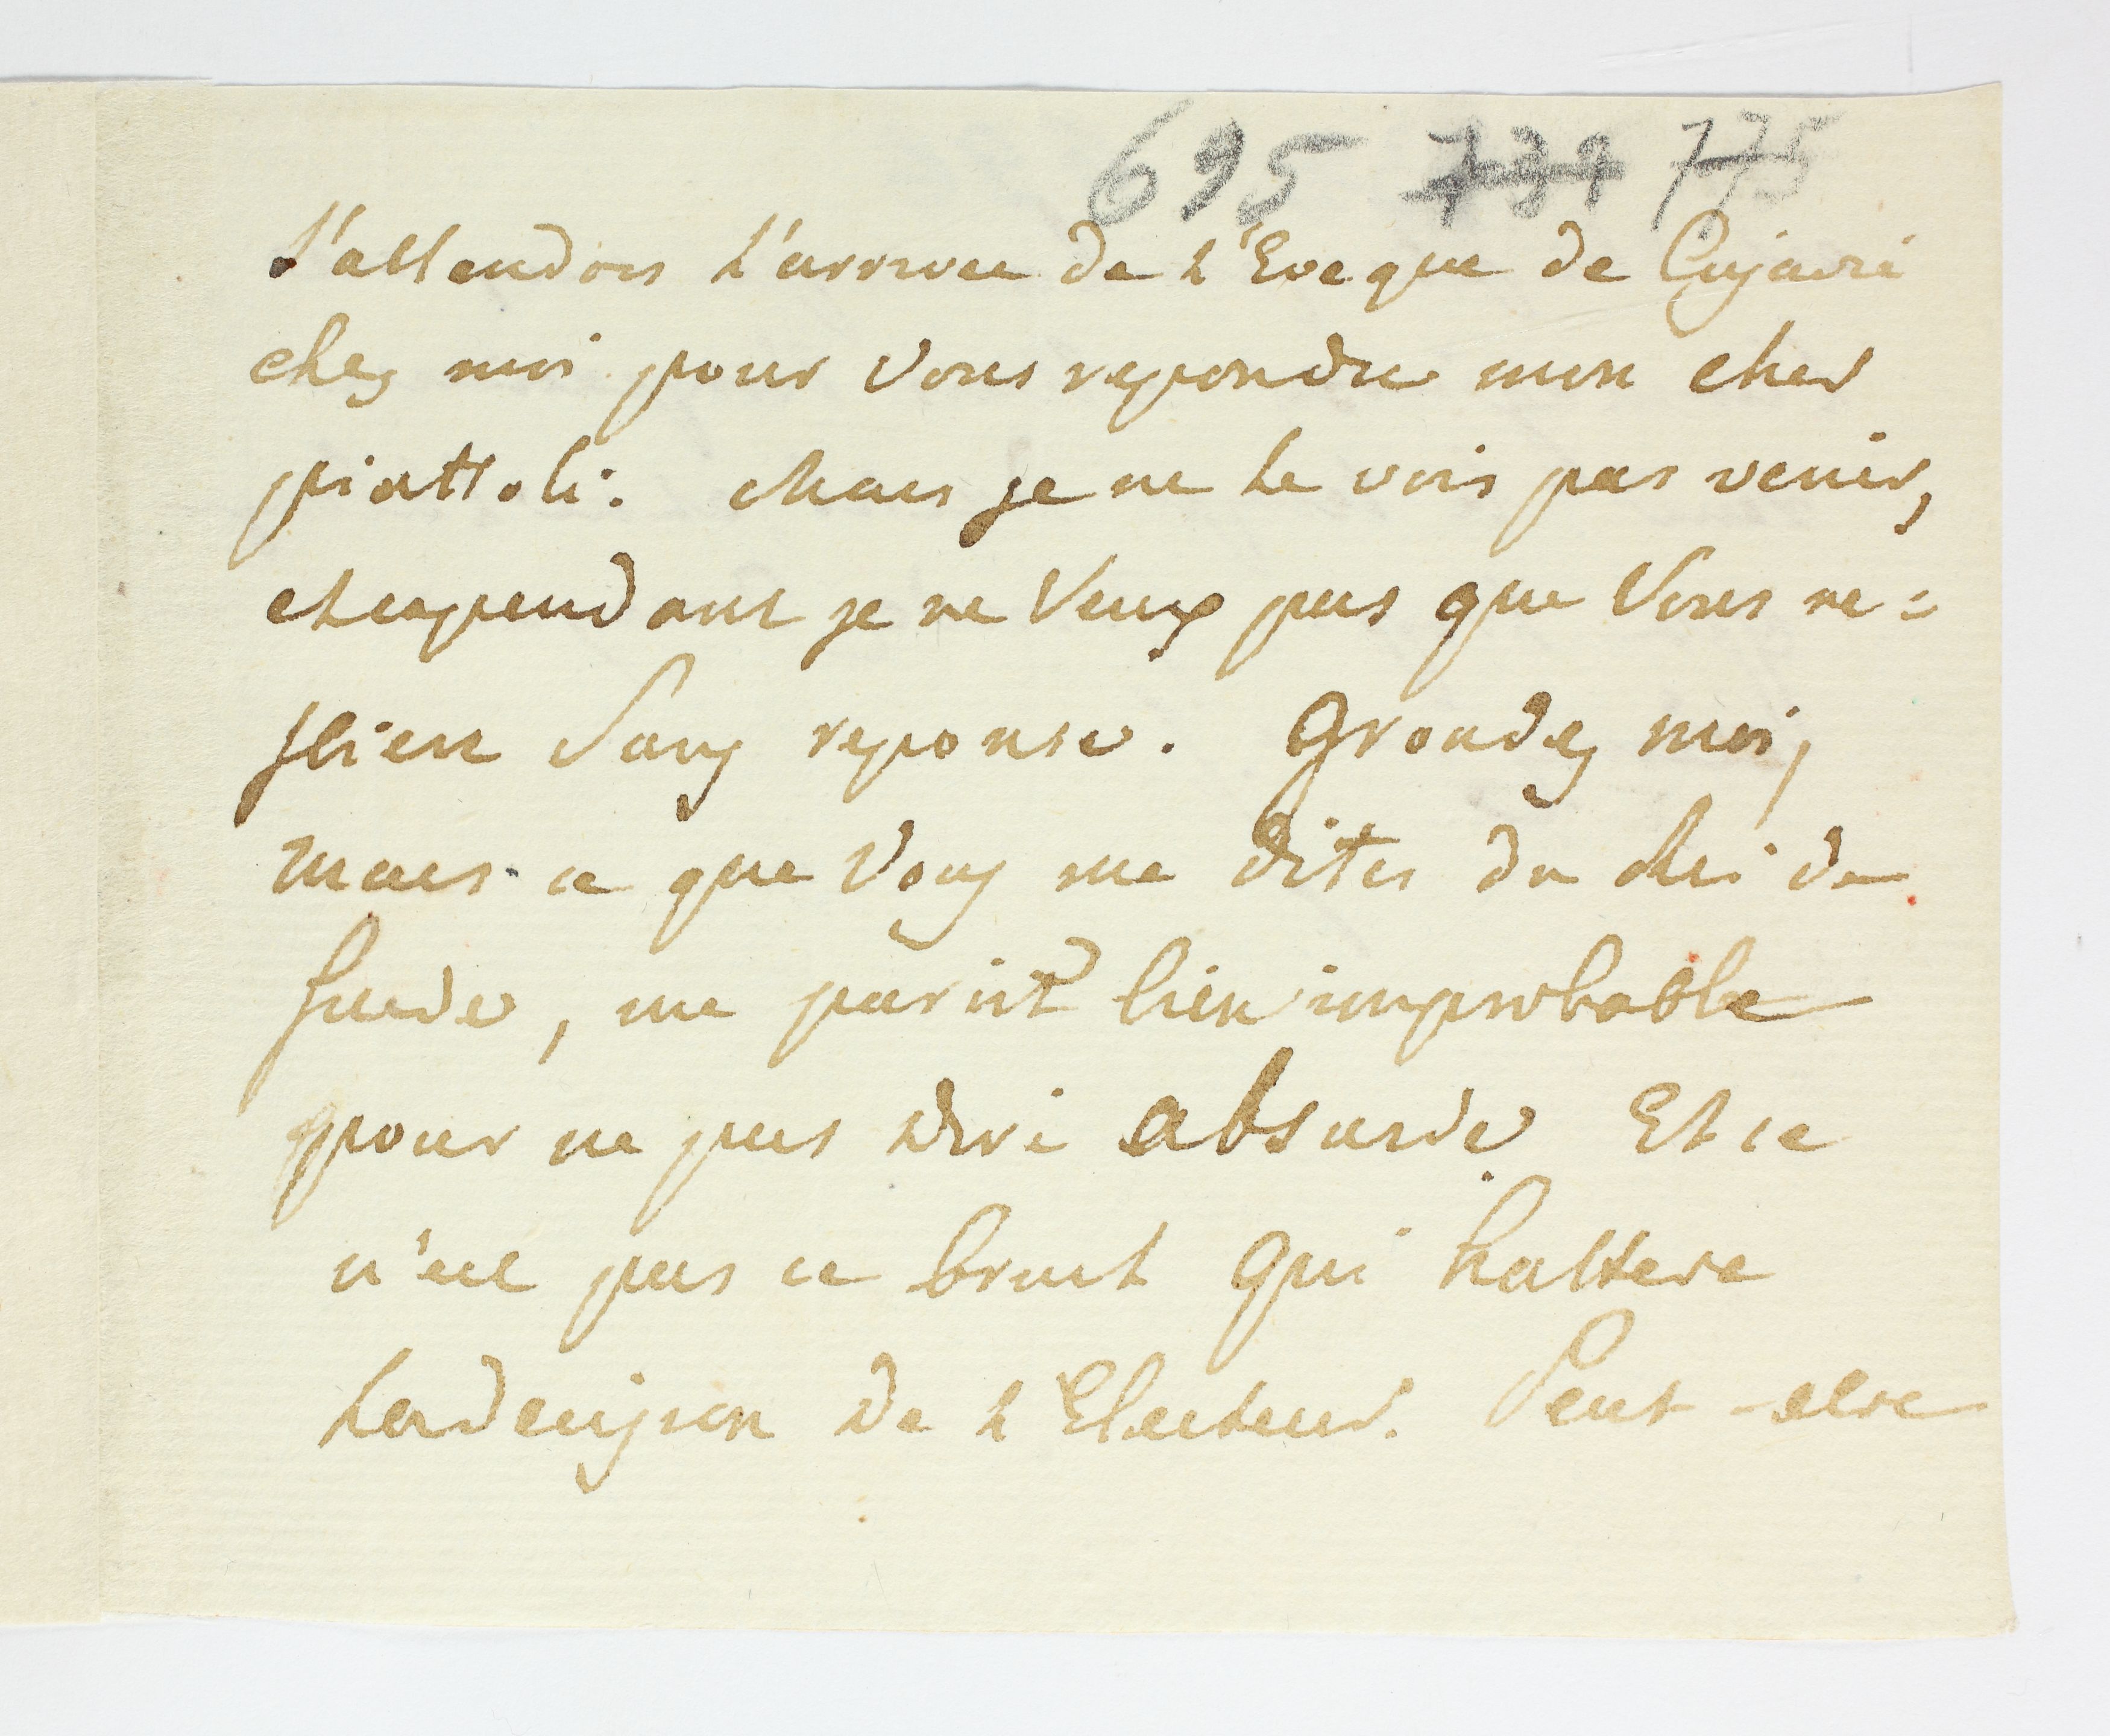 695 739 775
J'attendois l'arrivee de l'Eveque de Cujavie
chez moi pour vous repondre mon cher
piattoli. Mais je ne le vois pas venir,
chependant je ne veux pas que vous re=
stien sans reponse. Grondez moi,
mais ce que vous me dites du Roi de
Suede, me paroit bien improbable
pour ne pas dire absurde. Et ce
n'est pas ce bruit qui haltere
la decision de l'Electeur. Peut-etre